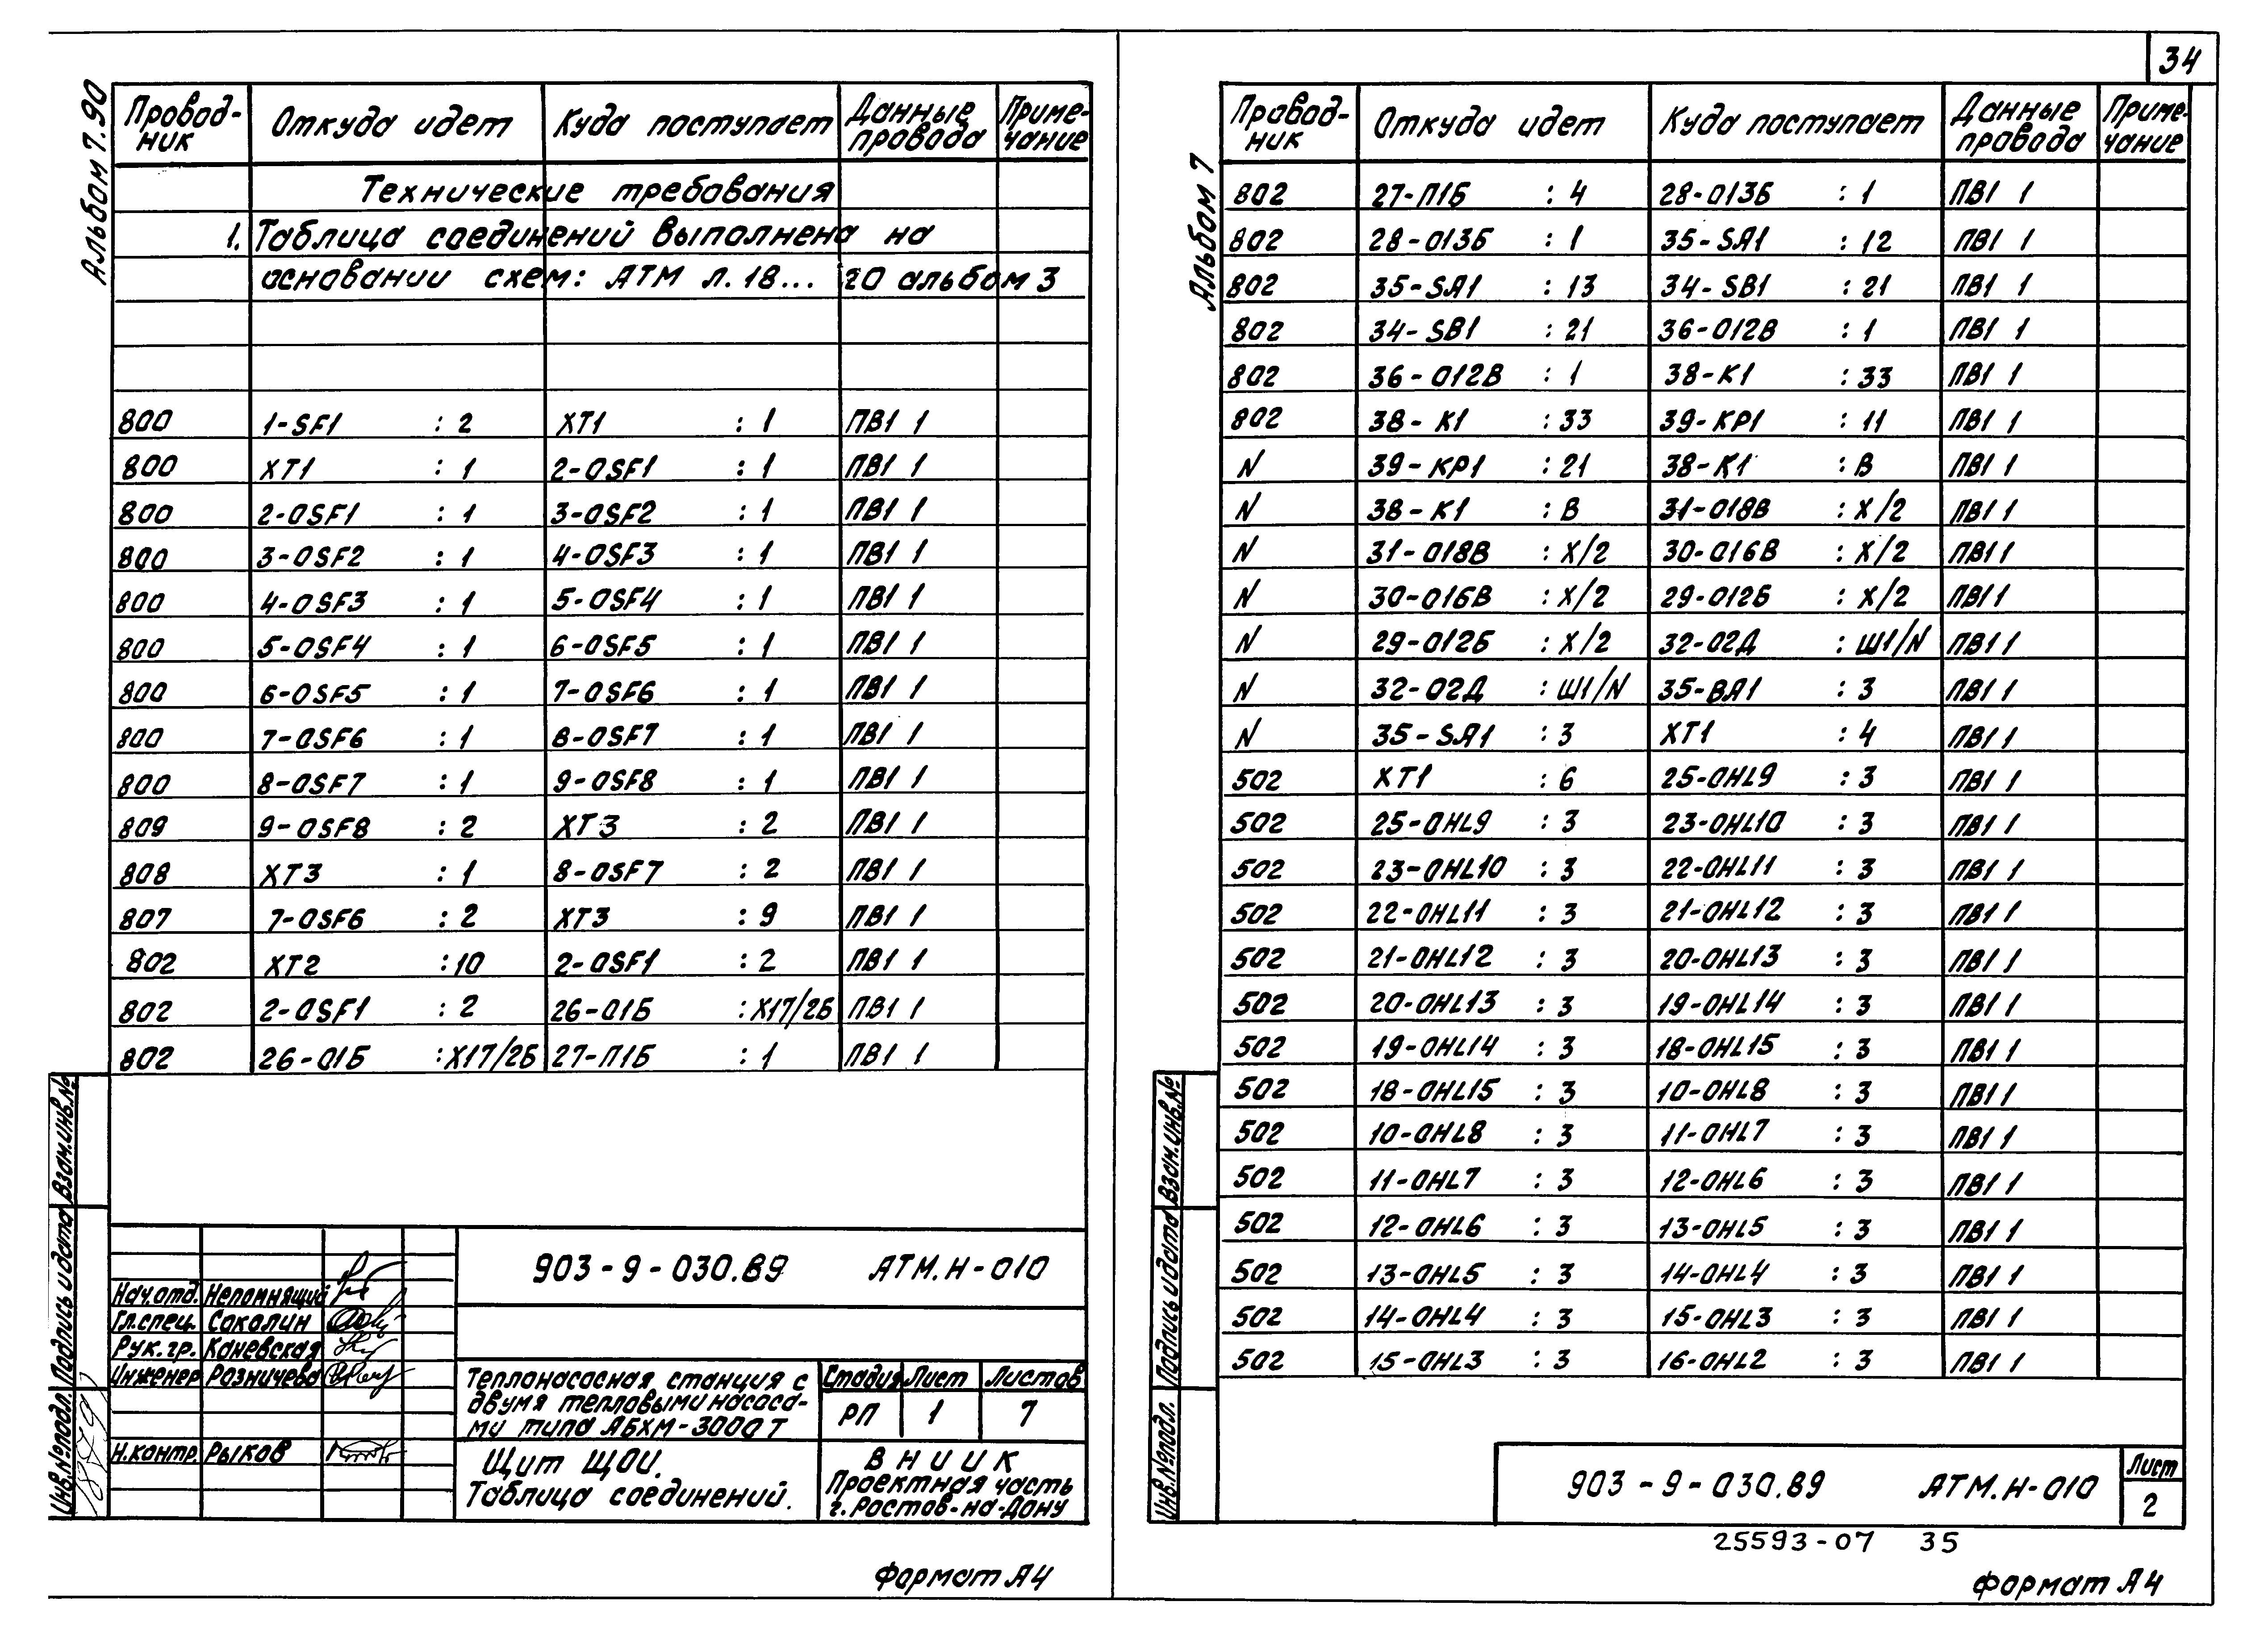 34
Альбом 7.90
Провод-ник Откуда идет Куда поступает Данные провода Приме-чание
Технические требования
1. Таблица соединений выполнена на
основании схем: АТМ л. 18... 20 альбом 3
800 1-SF1 : 2 XT1 : 1 ПВ1 1
800 XT1 : 1 2-0SF1 : 1 ПВ1 1
800 2-0SF1 : 1 3-0SF2 : 1 ПВ1 1
800 3-0SF2 : 1 4-0SF3 : 1 ПВ1 1
800 4-0SF3 : 1 5-0SF4 : 1 ПВ1 1
800 5-0SF4 : 1 6-0SF5 : 1 ПВ1 1
800 6-0SF5 : 1 7-0SF6 : 1 ПВ1 1
800 7-0SF6 : 1 8-0SF7 : 1 ПВ1 1
800 8-0SF7 : 1 9-0SF8 : 1 ПВ1 1
809 9-0SF8 : 2 XT3 : 2 ПВ1 1
808 XT3 : 1 8-0SF7 : 2 ПВ1 1
807 7-0SF6 : 2 XT3 : 9 ПВ1 1
802 XT2 : 10 2-0SF1 : 2 ПВ1 1
802 2-0SF1 : 2 26-01Б : X17/2Б ПВ1 1
802 26-01Б : X17/2Б 27-П1Б : 1 ПВ1 1
Взам.инв.№
Подпись и дата
Инв.№подл.
903-9-030.89 АТМ.Н-010
Нач.отд. Непомнящий
Гл.спец. Соколин
Рук.гр. Каневская
Инженер Разничева
Н.контр. Рыков
Теплонасосная станция с
двумя тепловыми насоса-
ми типа АБХМ-3000Т
Стадия Лист Листов
РП 1 7
Щит ЩОИ.
Таблица соединений.
ВНИИК
Проектная часть
г.Ростов-на-Дону
Формат А4
Альбом 7
Провод-ник Откуда идет Куда поступает Данные провода Приме-чание
802 27-П1Б : 4 28-013Б : 1 ПВ1 1
802 28-013Б : 1 35-SA1 : 12 ПВ1 1
802 35-SA1 : 13 34-SB1 : 21 ПВ1 1
802 34-SB1 : 21 36-012В : 1 ПВ1 1
802 36-012В : 1 38-K1 : 33 ПВ1 1
802 38-K1 : 33 39-KP1 : 11 ПВ1 1
N 39-KP1 : 21 38-K1 : В ПВ1 1
N 38-K1 : В 31-018В : X/2 ПВ1 1
N 31-018В : X/2 30-016В : X/2 ПВ1 1
N 30-016В : X/2 29-012Б : X/2 ПВ1 1
N 29-012Б : X/2 32-02Д : Ш1/N ПВ1 1
N 32-02Д : Ш1/N 35-ВА1 : 3 ПВ1 1
N 35-SA1 : 3 XT1 : 4 ПВ1 1
502 XT1 : 6 25-0HL9 : 3 ПВ1 1
502 25-0HL9 : 3 23-0HL10 : 3 ПВ1 1
502 23-0HL10 : 3 22-0HL11 : 3 ПВ1 1
502 22-0HL11 : 3 21-0HL12 : 3 ПВ1 1
502 21-0HL12 : 3 20-0HL13 : 3 ПВ1 1
502 20-0HL13 : 3 19-0HL14 : 3 ПВ1 1
502 19-0HL14 : 3 18-0HL15 : 3 ПВ1 1
502 18-0HL15 : 3 10-0HL8 : 3 ПВ1 1
502 10-0HL8 : 3 11-0HL7 : 3 ПВ1 1
502 11-0HL7 : 3 12-0HL6 : 3 ПВ1 1
502 12-0HL6 : 3 13-0HL5 : 3 ПВ1 1
502 13-0HL5 : 3 14-0HL4 : 3 ПВ1 1
502 14-0HL4 : 3 15-0HL3 : 3 ПВ1 1
502 15-0HL3 : 3 16-0HL2 : 3 ПВ1 1
Взам.инв.№
Подпись и дата
Инв.№подл.
903-9-030.89 АТМ.Н-010
Лист
2
25593-07 35
Формат А4